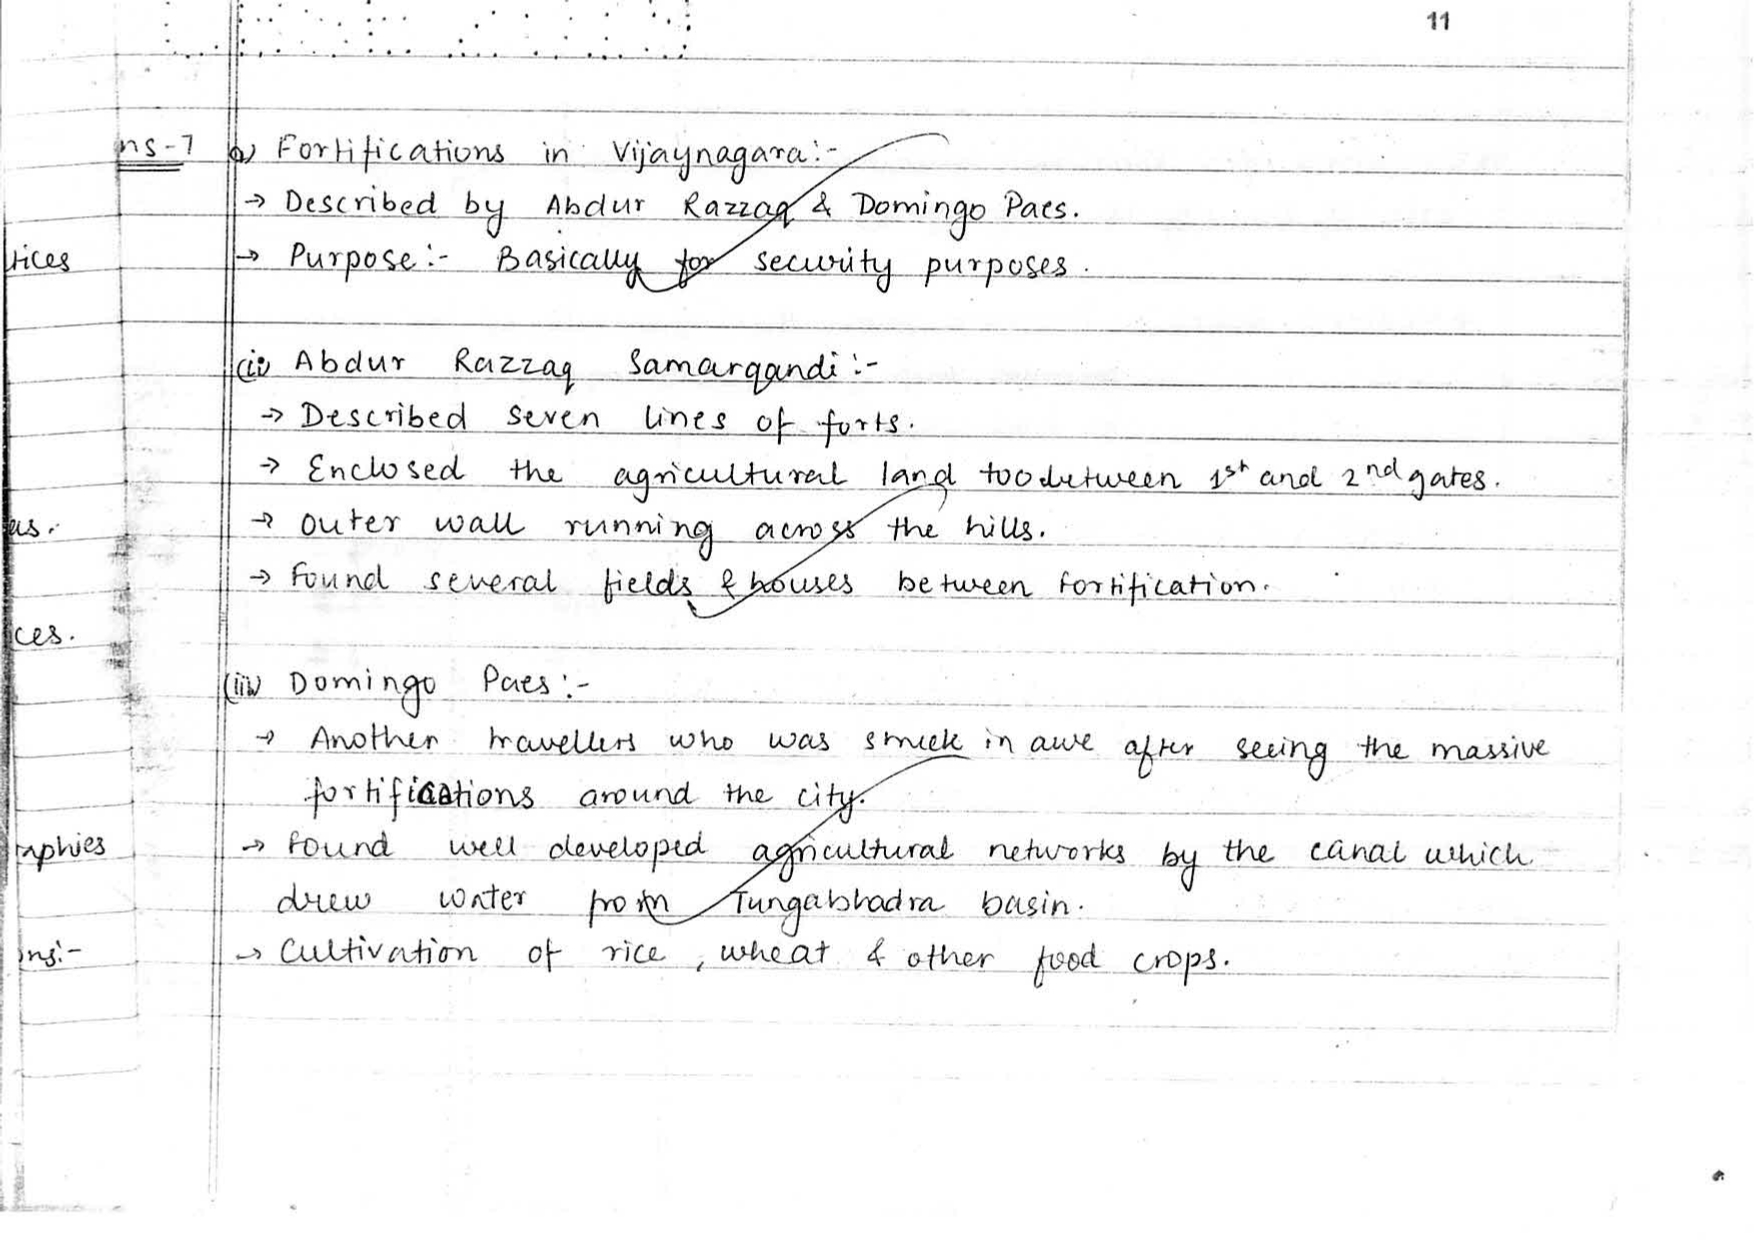 11
ns-7 (i) Fortifications in Vijaynagara:-
→ Described by Abdur Razzaq & Domingo Paes.
tices
→ Purpose:- Basically for security purposes.
(ii) Abdur Razzaq Samarqandi:-
→ Described seven lines of forts.
→ Enclosed the agricultural land too between 1st and 2nd gates.
as.
→ Outer wall running across the hills.
→ Found several fields & houses between fortification.
ces.
(iii) Domingo Paes:-
→ Another travellers who was struck in awe after seeing the massive
fortifications around the city.
raphies
→ Found well developed agricultural networks by the canal which
drew water from Tungabhadra basin.
ons:-
→ Cultivation of rice, wheat & other food crops.